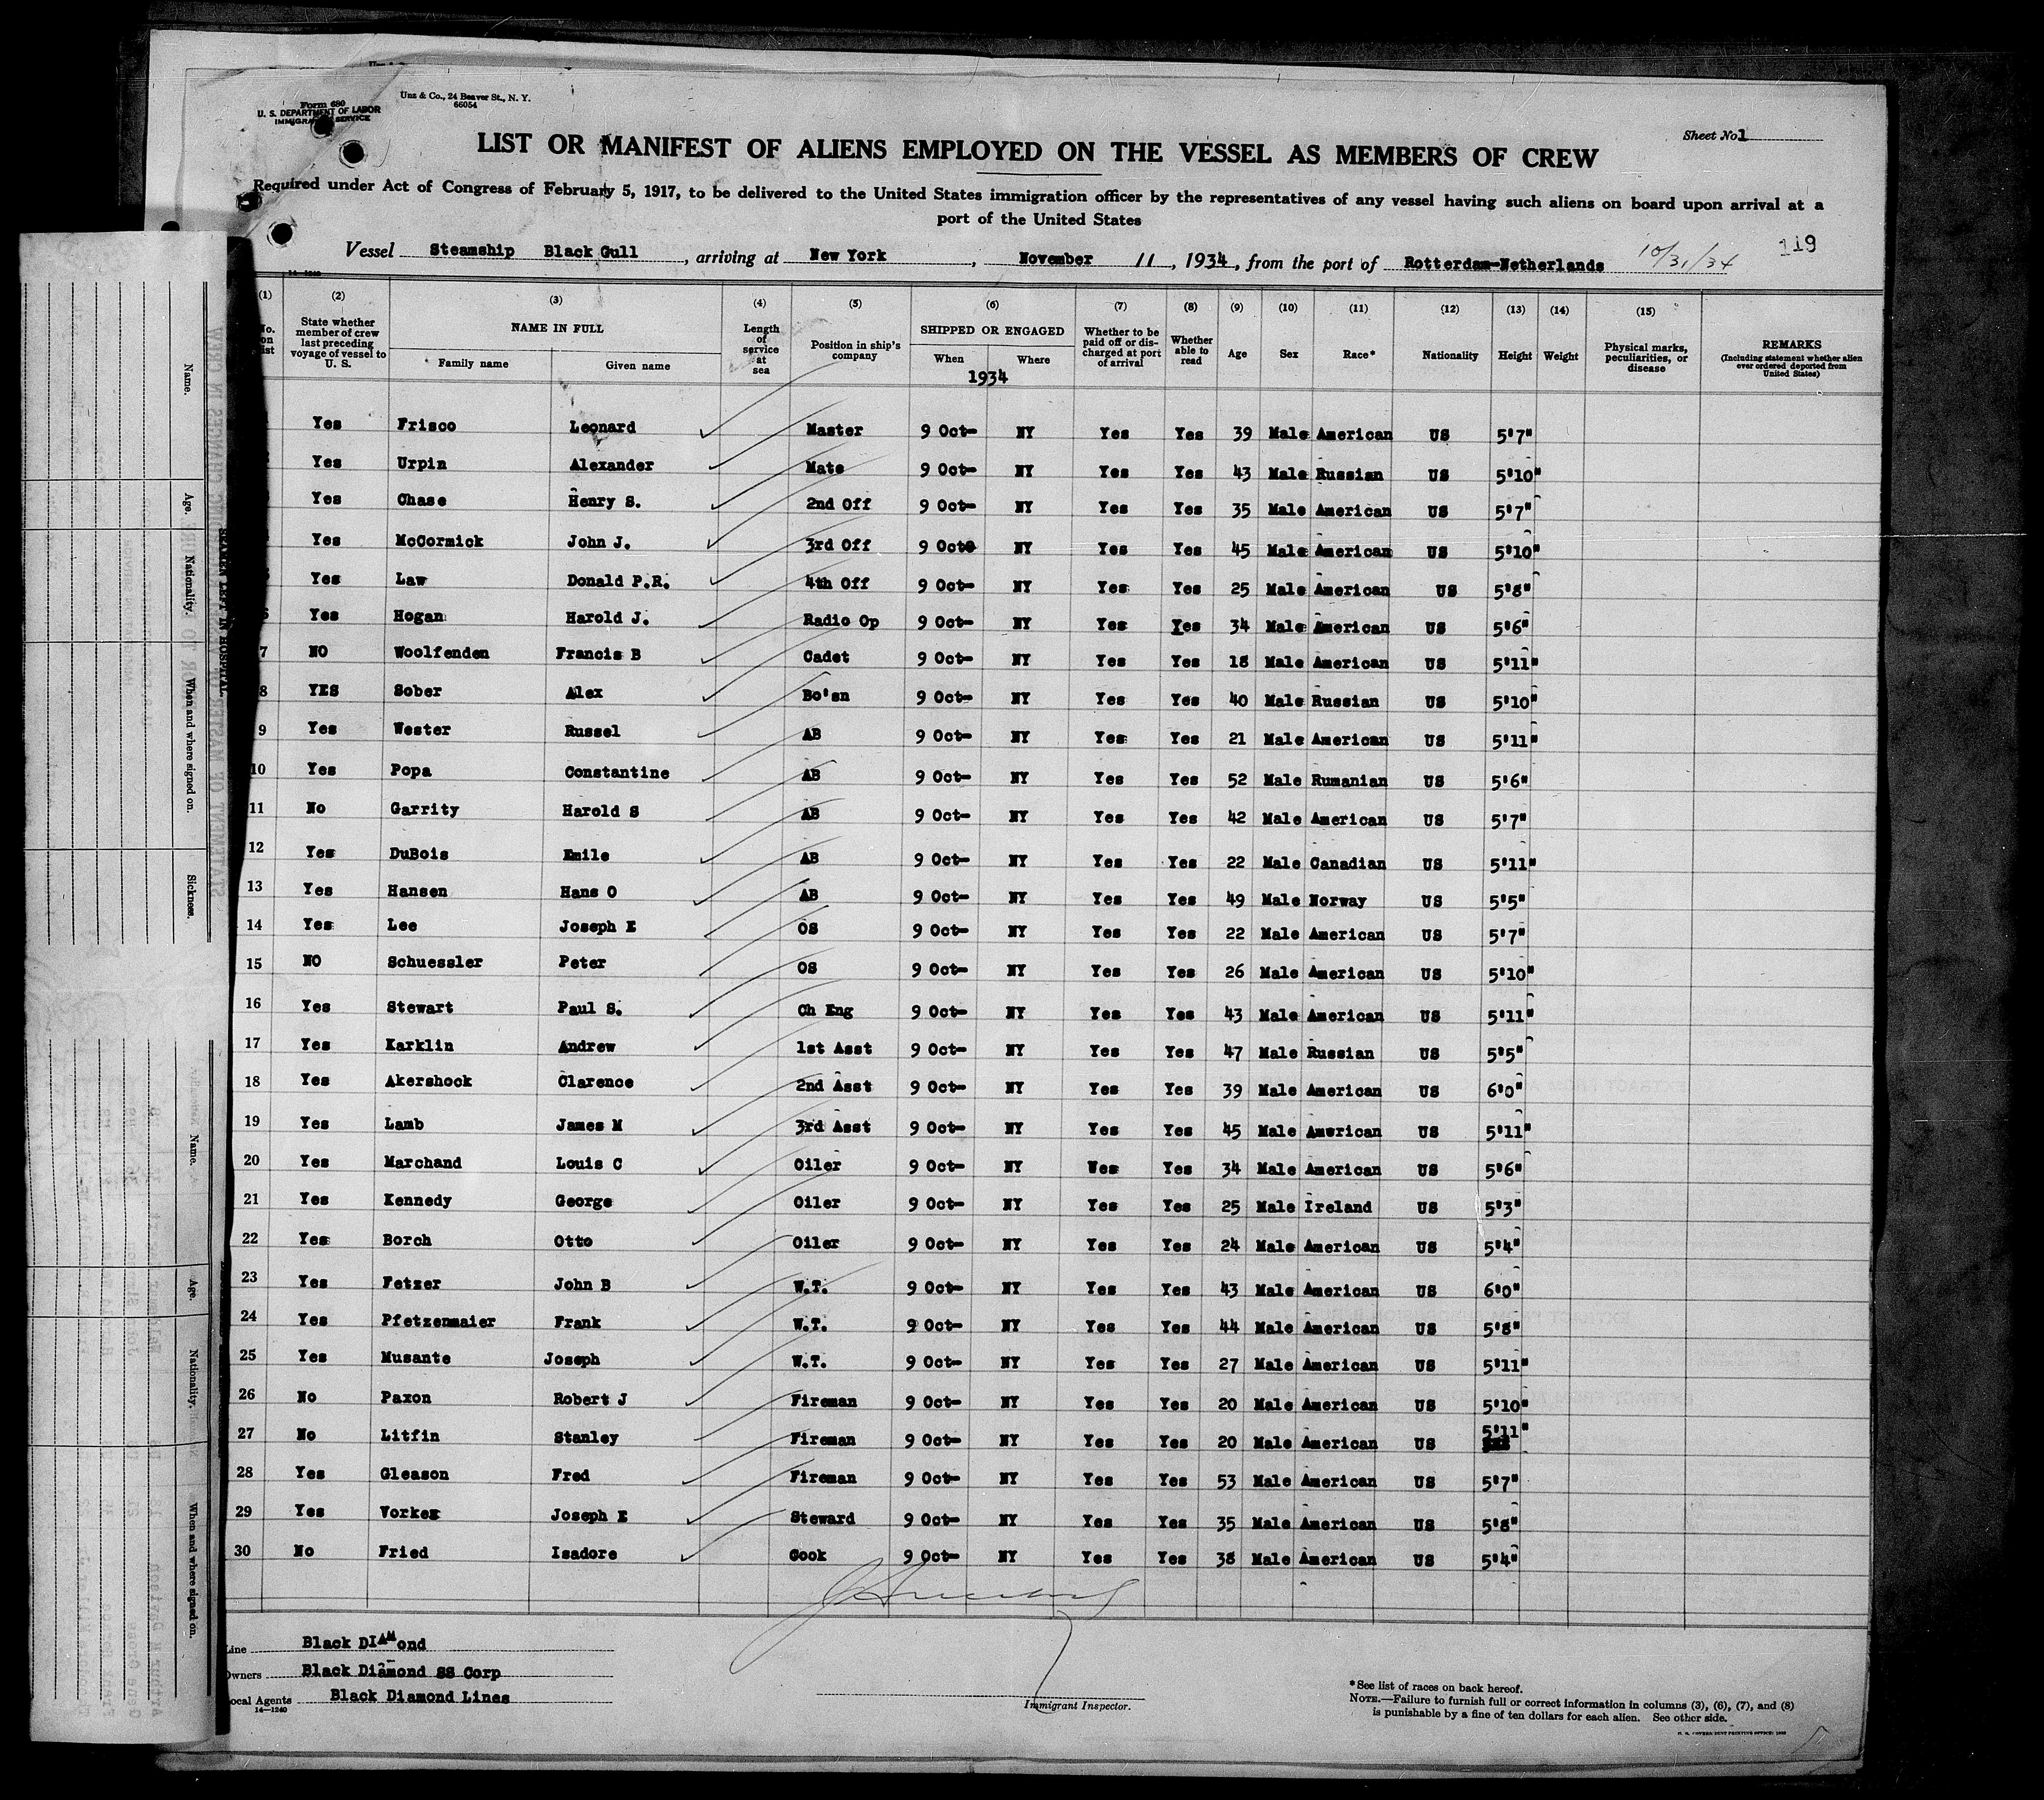 Form 680
U. S. DEPARTMENT OF LABOR
IMMIGRATION SERVICE
Unz & Co., 24 Beaver St., N. Y.
66054
Sheet No. 1
LIST OR MANIFEST OF ALIENS EMPLOYED ON THE VESSEL AS MEMBERS OF CREW
Required under Act of Congress of February 5, 1917, to be delivered to the United States immigration officer by the representatives of any vessel having such aliens on board upon arrival at a
port of the United States
119
Vessel Steamship Black Gull, arriving at New York, November 11, 1934, from the port of Rotterdam-Netherlands 10/31/34
14-1240
(1) (2) (3) (4) (5) (6) (7) (8) (9) (10) (11) (12) (13) (14) (15)
No. on list | State whether member of crew last preceding voyage of vessel to U. S. | NAME IN FULL Family name Given name | Length of service at sea | Position in ship's company | SHIPPED OR ENGAGED When Where | Whether to be paid off or discharged at port of arrival | Whether able to read | Age | Sex | Race* | Nationality | Height | Weight | Physical marks, peculiarities, or disease | REMARKS (Including statement whether alien ever ordered deported from United States)
1934
Yes Frisco Leonard Master 9 Oct- NY Yes Yes 39 Male American US 5'7"
Yes Urpin Alexander Mate 9 Oct- NY Yes Yes 43 Male Russian US 5'10"
Yes Chase Henry S. 2nd Off 9 Oct- NY Yes Yes 35 Male American US 5'7"
Yes McCormick John J. 3rd Off 9 Oct- NY Yes Yes 45 Male American US 5'10"
5 Yes Law Donald P.R. 4th Off 9 Oct- NY Yes Yes 25 Male American US 5'8"
6 Yes Hogan Harold J. Radio Op 9 Oct- NY Yes Yes 34 Male American US 5'6"
7 NO Woolfenden Francis B Cadet 9 Oct- NY Yes Yes 18 Male American US 5'11"
8 YES Sober Alex Bo'sn 9 Oct- NY Yes Yes 40 Male Russian US 5'10"
9 Yes Wester Russel AB 9 Oct- NY Yes Yes 21 Male American US 5'11"
10 Yes Popa Constantine AB 9 Oct- NY Yes Yes 52 Male Rumanian US 5'6"
11 No Garrity Harold S AB 9 Oct- NY Yes Yes 42 Male American US 5'7"
12 Yes DuBois Emile AB 9 Oct- NY Yes Yes 22 Male Canadian US 5'11"
13 Yes Hansen Hans O AB 9 Oct- NY Yes Yes 49 Male Norway US 5'5"
14 Yes Lee Joseph E OS 9 Oct- NY Yes Yes 22 Male American US 5'7"
15 NO Schuessler Peter OS 9 Oct- NY Yes Yes 26 Male American US 5'10"
16 Yes Stewart Paul S. Ch Eng 9 Oct- NY Yes Yes 43 Male American US 5'11"
17 Yes Karklin Andrew 1st Asst 9 Oct- NY Yes Yes 47 Male Russian US 5'5"
18 Yes Akershock Clarence 2nd Asst 9 Oct- NY Yes Yes 39 Male American US 6'0"
19 Yes Lamb James M 3rd Asst 9 Oct- NY Yes Yes 45 Male American US 5'11"
20 Yes Marchand Louis C Oiler 9 Oct- NY Wes Yes 34 Male American US 5'6"
21 Yes Kennedy George Oiler 9 Oct- NY Yes Yes 25 Male Ireland US 5'3"
22 Yes Borch Otto Oiler 9 Oct- NY Yes Yes 24 Male American US 5'4"
23 Yes Fetzer John B W.T. 9 Oct- NY Yes Yes 43 Male American US 6'0"
24 Yes Pfetzenmaier Frank W.T. 9 Oct- NY Yes Yes 44 Male American US 5'8"
25 Yes Musante Joseph W.T. 9 Oct- NY Yes Yes 27 Male American US 5'11"
26 No Paxon Robert J Fireman 9 Oct- NY Yes Yes 20 Male American US 5'10"
27 No Litfin Stanley Fireman 9 Oct- NY Yes Yes 20 Male American US 5'11"
28 Yes Gleason Fred Fireman 9 Oct- NY Yes Yes 53 Male American US 5'7"
29 Yes Vorkez Joseph E Steward 9 Oct- NY Yes Yes 35 Male American US 5'8"
30 No Fried Isadore Cook 9 Oct- NY Yes Yes 38 Male American US 5'4"
Line Black DIAMond
Owners Black Diamond SS Corp
Local Agents Black Diamond Lines
14-1240
Immigrant Inspector.
*See list of races on back hereof.
NOTE.—Failure to furnish full or correct information in columns (3), (6), (7), and (8)
is punishable by a fine of ten dollars for each alien. See other side.
Name.
Age.
Nationality.
When and where signed on.
Sickness.
Name.
Age.
Nationality.
When and where signed on.